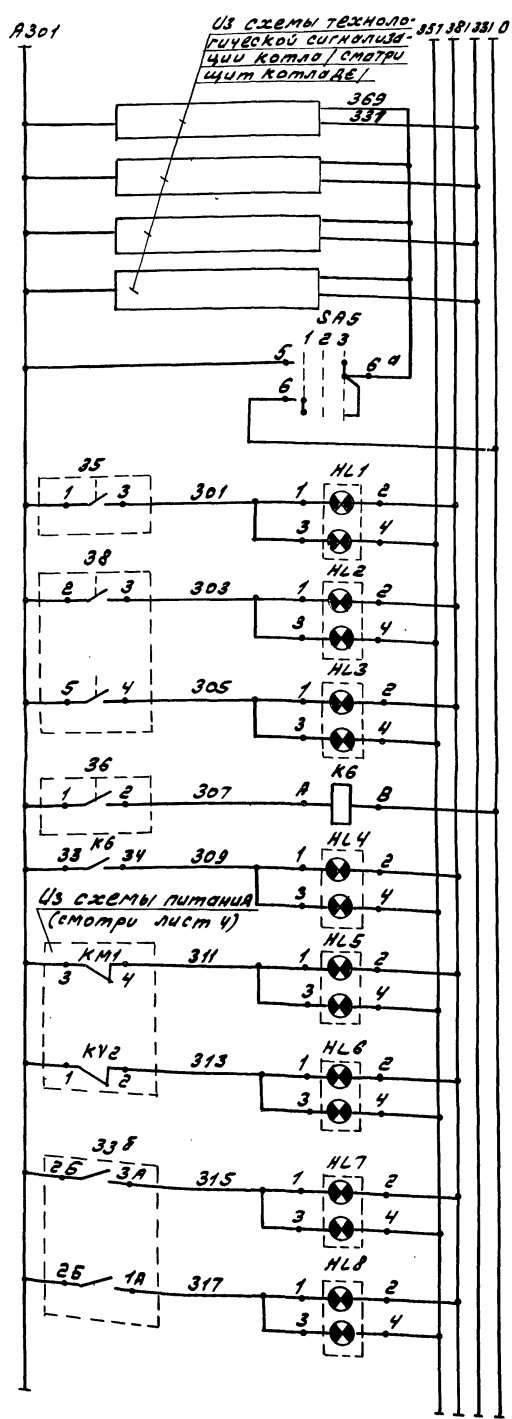 А301
Из схемы техноло-
гической сигнализа-
ции котла /смотри
щит котла ДЕ/
357 381 331 0
369
331
SA5
1 2 3
5
6 а
6
35
1 3 301 1 HL1 2
3 4
38
2 3 303 1 HL2 2
3 4
5 4 305 1 HL3 2
3 4
36
1 2 307 А К6 В
К6
33 34 309 1 HL4 2
3 4
Из схемы питания
(смотри лист 4)
КМ1
3 4 311 1 HL5 2
3 4
KV2
1 2 313 1 HL6 2
3 4
33б
2Б 3А 315 1 HL7 2
3 4
2Б 1А 317 1 HL8 2
3 4